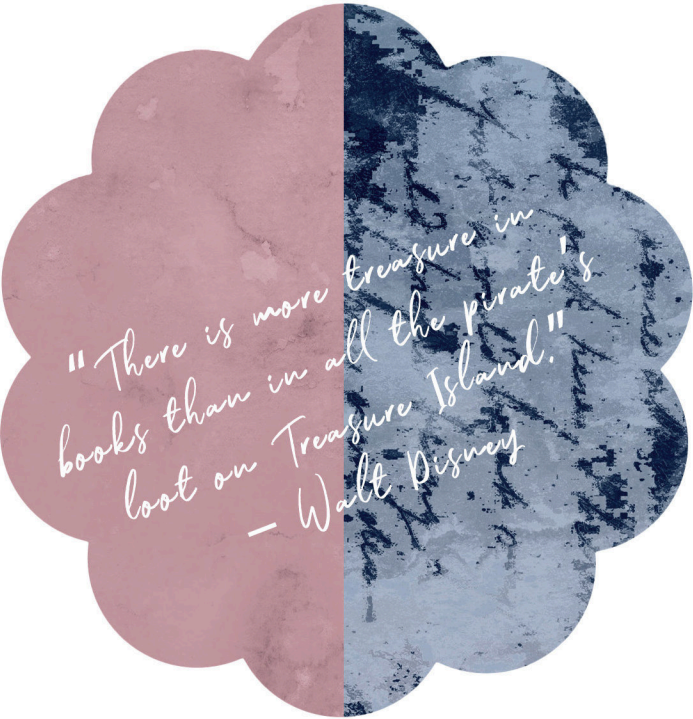 "There is more treasure in
books than in all the pirate's
loot on Treasure Island."
— Walt Disney